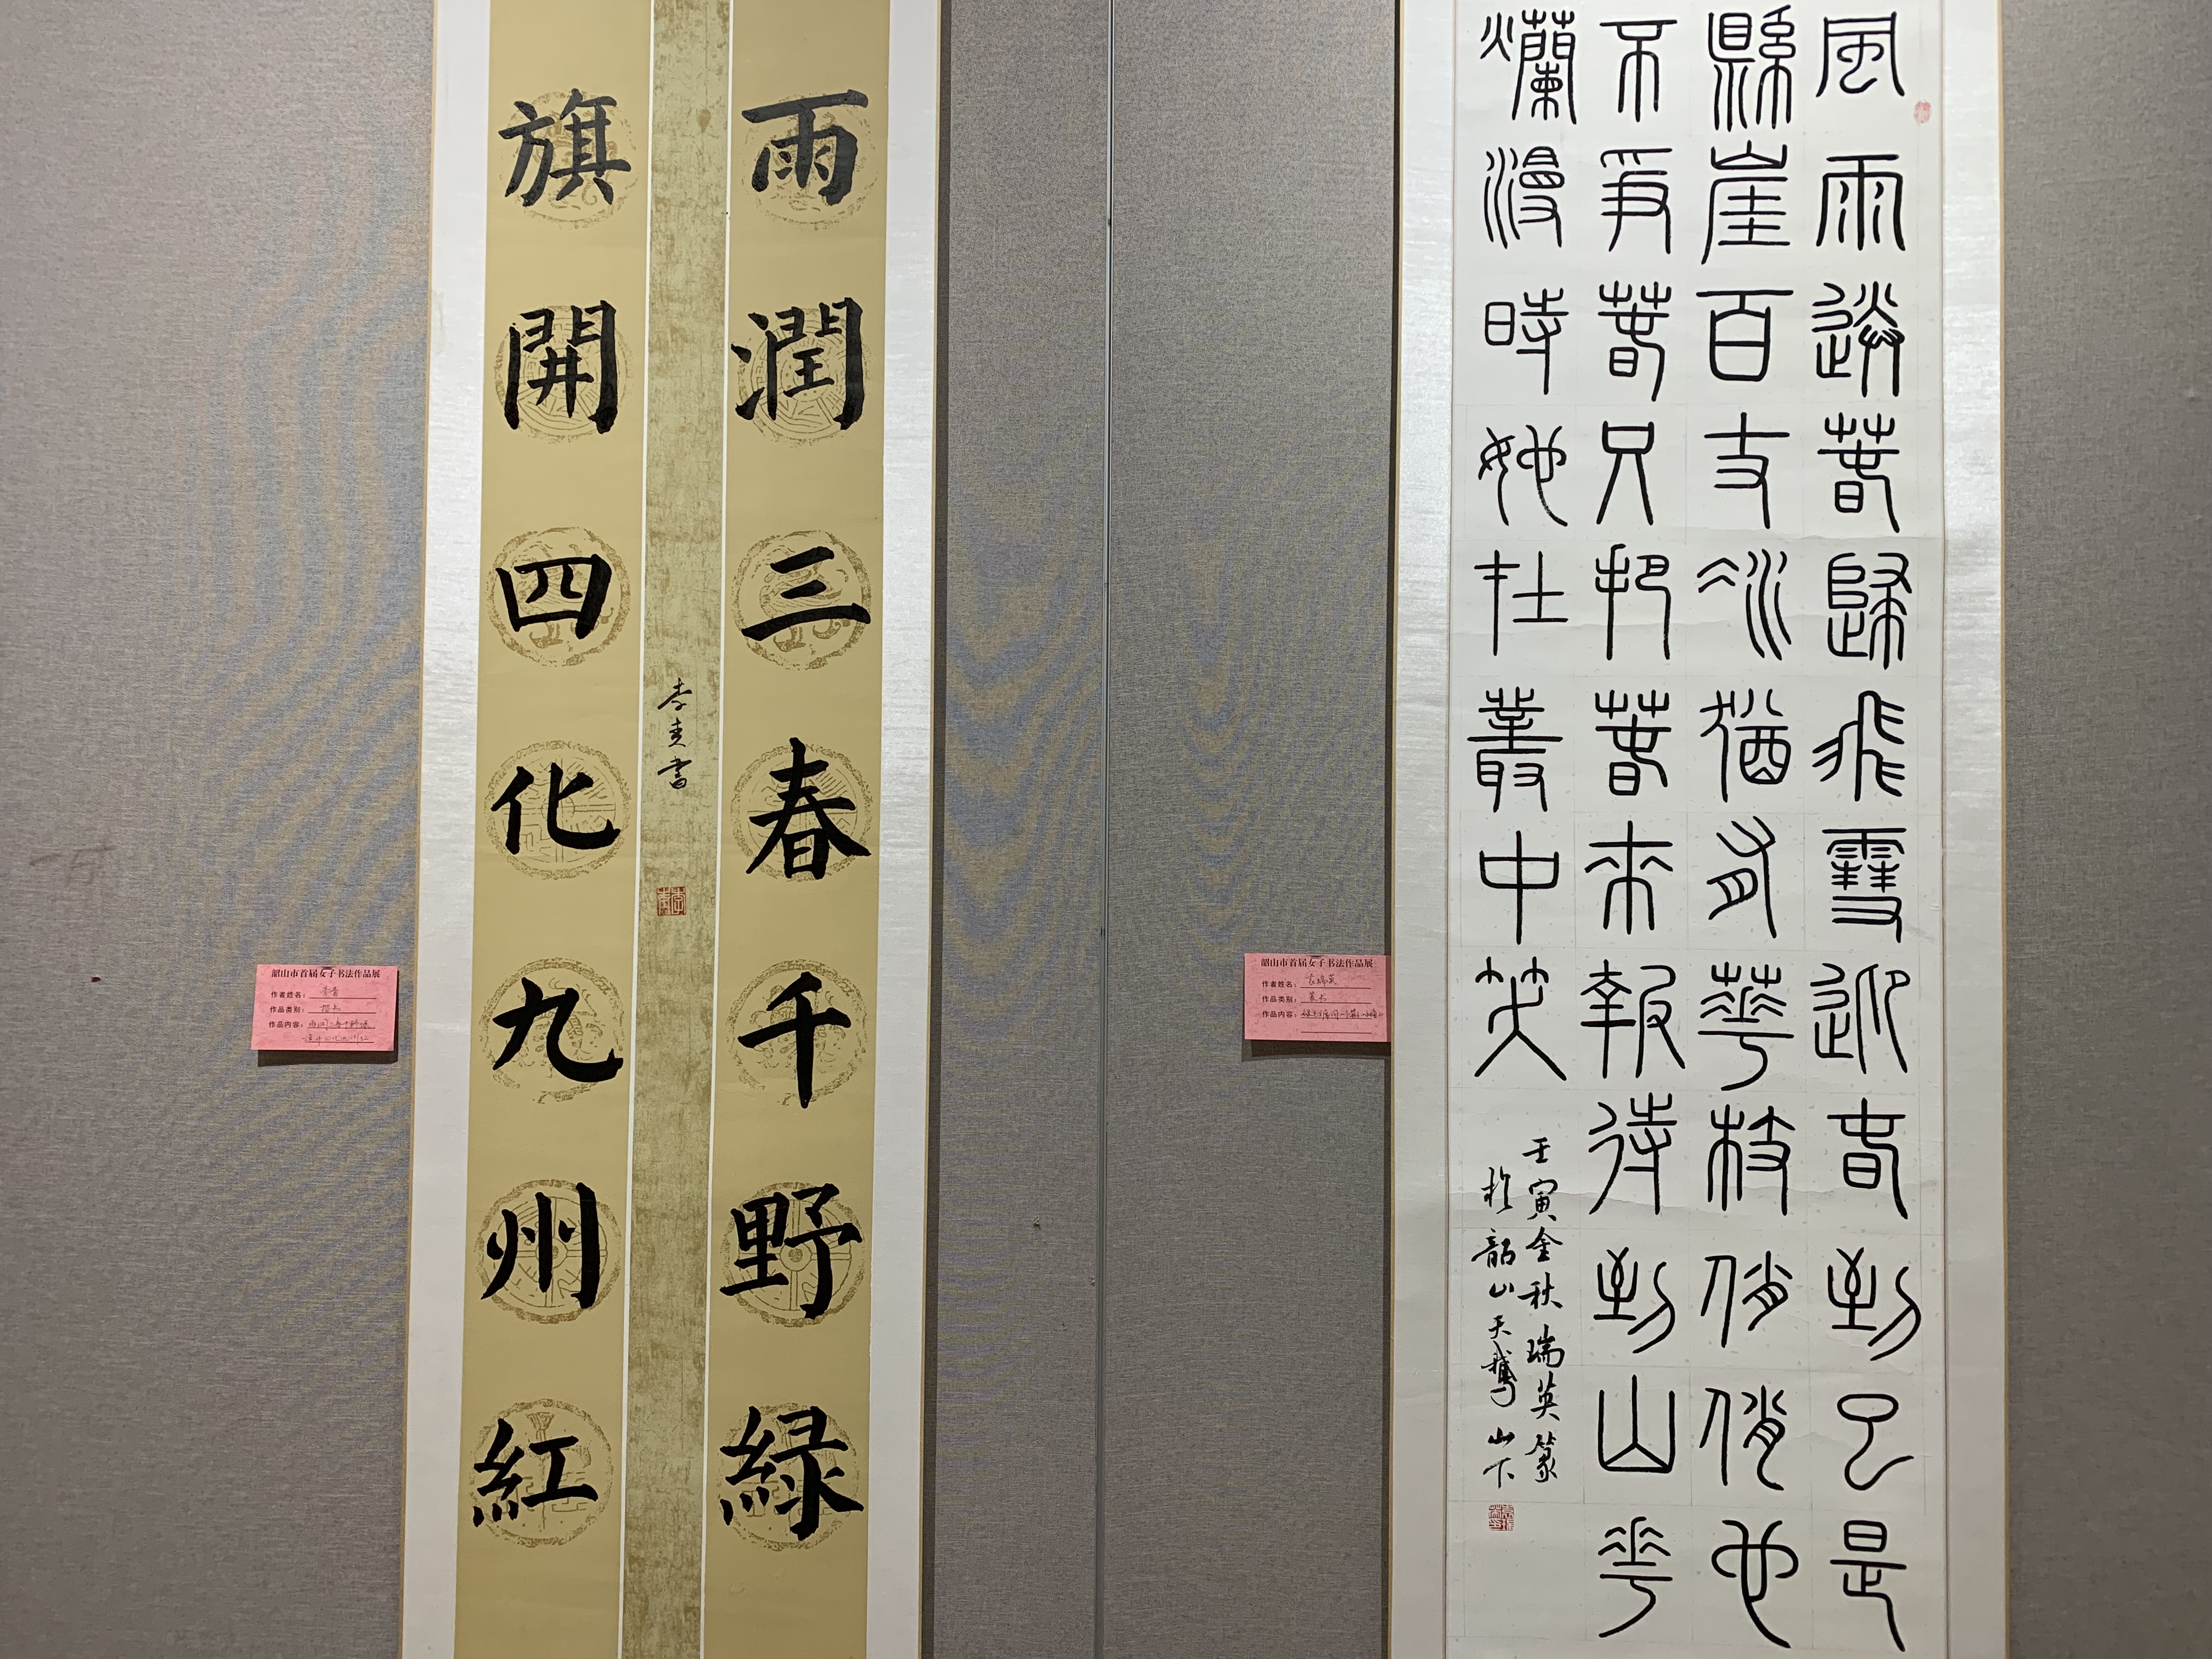 風雨送春歸飛雪迎春到已是
縣崖百丈冰猶有華枝俏俏也
不爭春只把春來報待到山花
爛漫時她在叢中笑
壬寅金秋瑞英篆
於韶山天鵝山下
雨潤三春千野綠
旗開四化九州紅
李青書
韶山市首届女子书法作品展
作者姓名：
作品类别：篆书
作品内容：
韶山市首届女子书法作品展
作者姓名：李青
作品类别：楷书
作品内容：雨润三春千野绿
旗开四化九州红